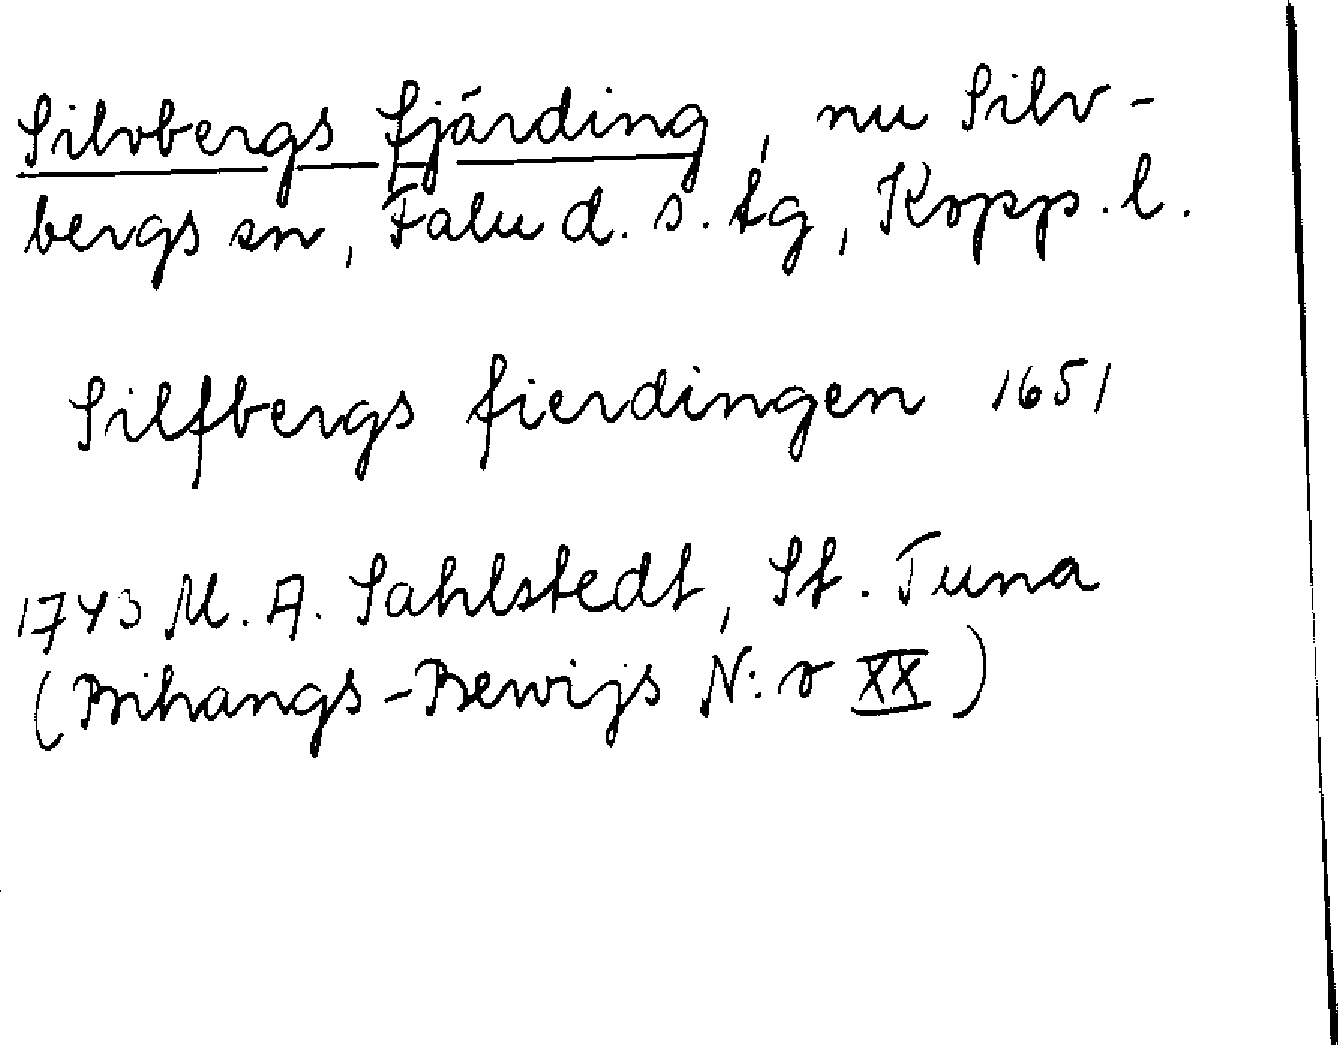 Silvbergs fjärding, nu Silv-
bergs sn, Falu d. s. tg, Kopp. l.
Silfbergs fierdingen 1651
1743 M. A. Sahlstedt, St. Tuna
(Bihangs-Bewijs N:r XX)